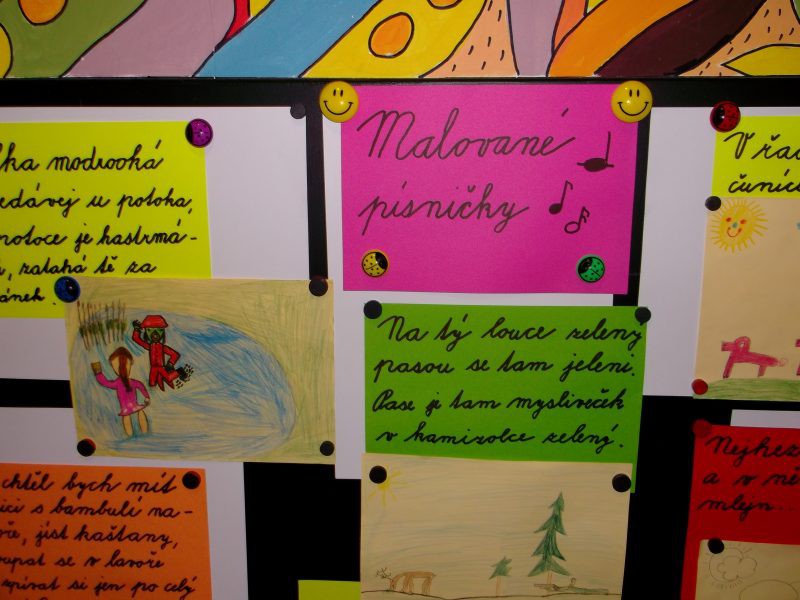 Malované
písničky
lka modrooká
edávej u potoka,
potoce je hastrmá-
, zatahá tě za
ánek.
Na tý louce zeleny
pasou se tam jeleni.
Pase je tam mysliveček
v kamizolce zelený.
V řad
čuníc
chtěl bych mít
ici s bambulí na-
oře, jíst kaštany,
oupat se v lavoře
zpívat si jen po celý
Nejhez
a v ně
mlejn...